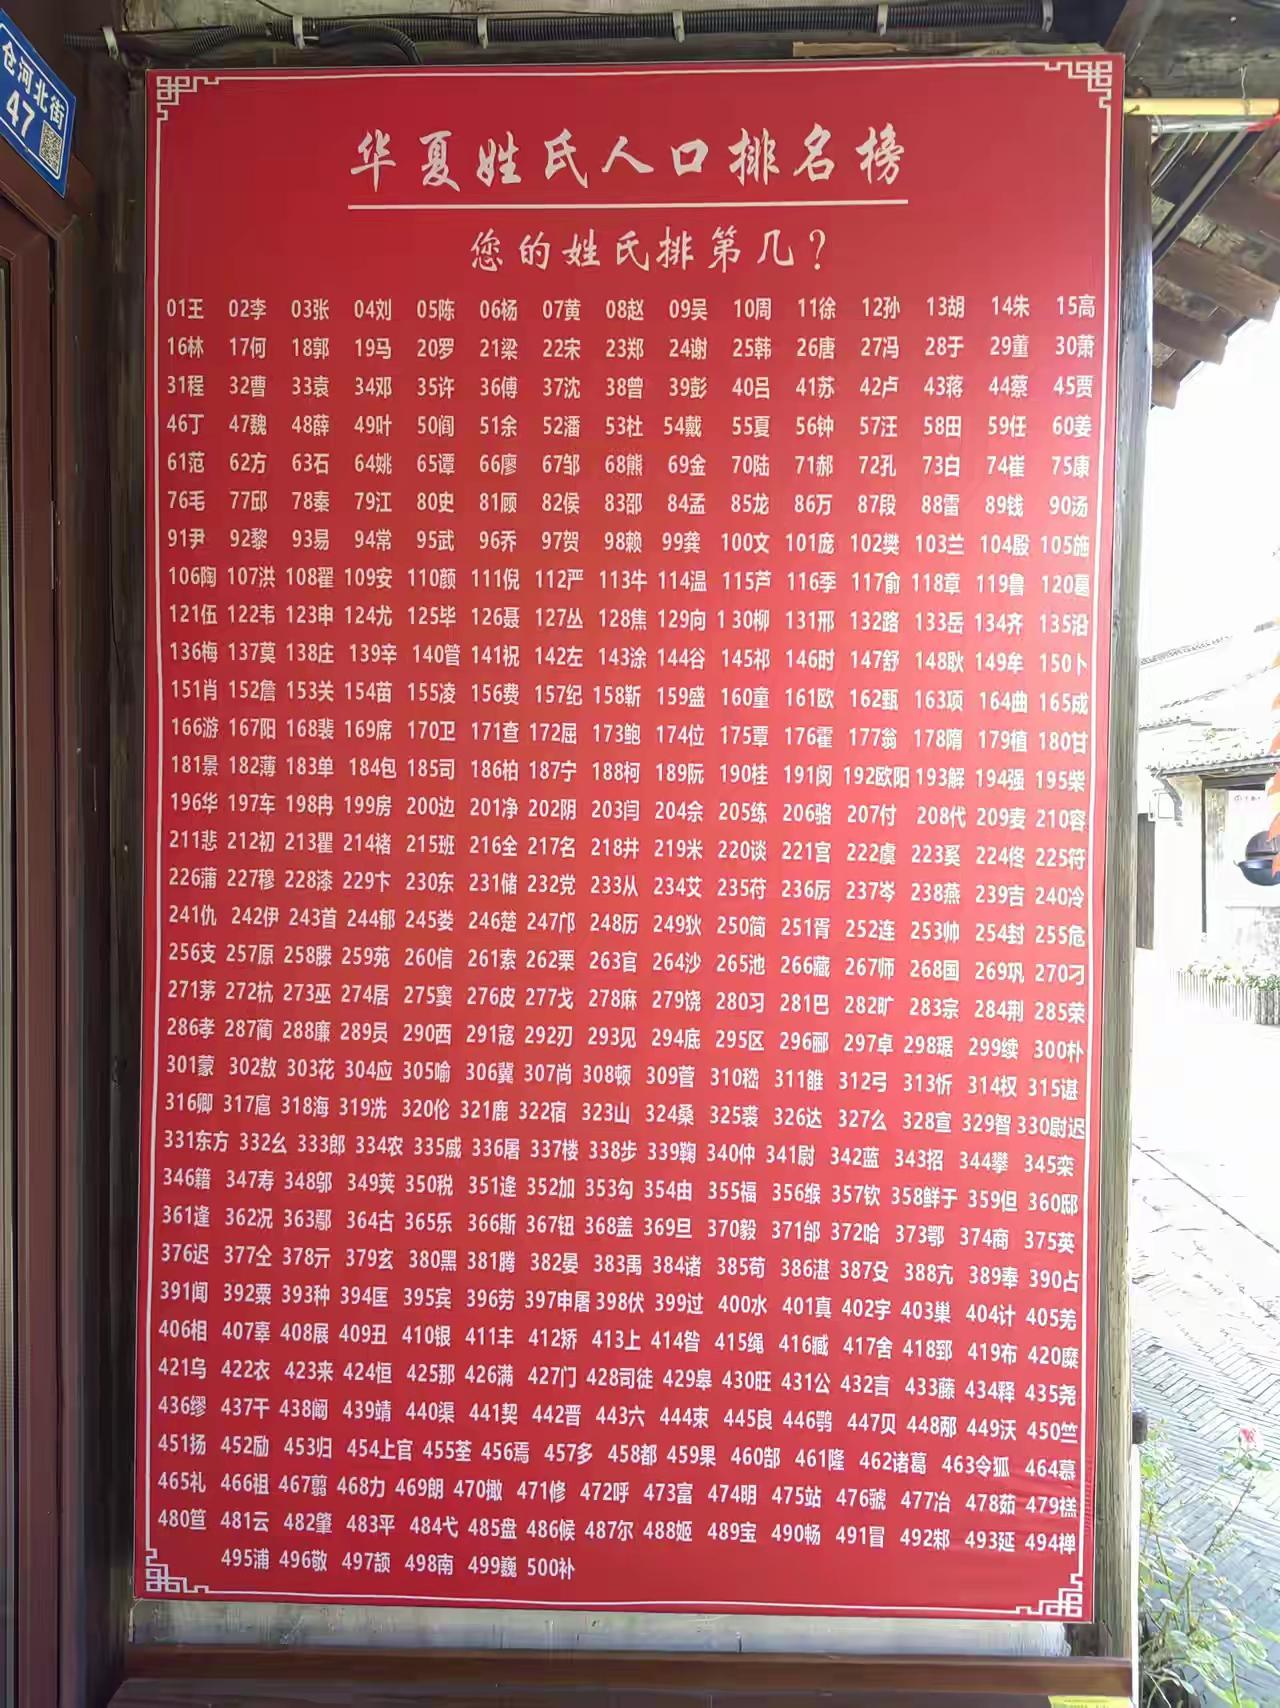 仓河北街
47
华夏姓氏人口排名榜
您的姓氏排第几？
01王 02李 03张 04刘 05陈 06杨 07黄 08赵 09吴 10周 11徐 12孙 13胡 14朱 15高
16林 17何 18郭 19马 20罗 21梁 22宋 23郑 24谢 25韩 26唐 27冯 28于 29董 30萧
31程 32曹 33袁 34邓 35许 36傅 37沈 38曾 39彭 40吕 41苏 42卢 43蒋 44蔡 45贾
46丁 47魏 48薛 49叶 50阎 51余 52潘 53杜 54戴 55夏 56钟 57汪 58田 59任 60姜
61范 62方 63石 64姚 65谭 66廖 67邹 68熊 69金 70陆 71郝 72孔 73白 74崔 75康
76毛 77邱 78秦 79江 80史 81顾 82侯 83邵 84孟 85龙 86万 87段 88雷 89钱 90汤
91尹 92黎 93易 94常 95武 96乔 97贺 98赖 99龚 100文 101庞 102樊 103兰 104殷 105施
106陶 107洪 108翟 109安 110颜 111倪 112严 113牛 114温 115芦 116季 117俞 118章 119鲁 120葛
121伍 122韦 123申 124尤 125毕 126聂 127丛 128焦 129向 130柳 131邢 132路 133岳 134齐 135沿
136梅 137莫 138庄 139辛 140管 141祝 142左 143涂 144谷 145祁 146时 147舒 148耿 149牟 150卜
151肖 152詹 153关 154苗 155凌 156费 157纪 158靳 159盛 160童 161欧 162甄 163项 164曲 165成
166游 167阳 168裴 169席 170卫 171查 172屈 173鲍 174位 175覃 176霍 177翁 178隋 179植 180甘
181景 182薄 183单 184包 185司 186柏 187宁 188柯 189阮 190桂 191闵 192欧阳 193解 194强 195柴
196华 197车 198冉 199房 200边 201净 202阴 203闫 204佘 205练 206骆 207付 208代 209麦 210容
211悲 212初 213瞿 214褚 215班 216全 217名 218井 219米 220谈 221宫 222虞 223奚 224佟 225符
226蒲 227穆 228漆 229卞 230东 231储 232党 233从 234艾 235苻 236厉 237岑 238燕 239吉 240冷
241仇 242伊 243首 244郁 245娄 246楚 247邝 248历 249狄 250简 251胥 252连 253帅 254封 255危
256支 257原 258滕 259苑 260信 261索 262栗 263官 264沙 265池 266藏 267师 268国 269巩 270刁
271茅 272杭 273巫 274居 275窦 276皮 277戈 278麻 279饶 280习 281巴 282旷 283宗 284荆 285荣
286孝 287蔺 288廉 289员 290西 291寇 292刃 293见 294底 295区 296郦 297卓 298琚 299续 300朴
301蒙 302敖 303花 304应 305喻 306冀 307尚 308顿 309菅 310嵇 311雒 312弓 313忻 314权 315谌
316卿 317扈 318海 319冼 320伦 321鹿 322宿 323山 324桑 325裘 326达 327么 328宣 329智 330尉迟
331东方 332幺 333郎 334农 335戚 336屠 337楼 338步 339鞠 340仲 341尉 342蓝 343招 344攀 345栾
346籍 347寿 348邬 349荚 350税 351逄 352加 353勾 354由 355福 356缑 357钦 358鲜于 359但 360邸
361逢 362况 363鄢 364古 365乐 366斯 367钮 368盖 369旦 370毅 371邰 372哈 373鄂 374商 375英
376迟 377仝 378亓 379玄 380黑 381腾 382晏 383禹 384诸 385荀 386湛 387殳 388亢 389奉 390占
391闻 392粟 393种 394匡 395宾 396劳 397申屠 398伏 399过 400水 401真 402宇 403巢 404计 405羌
406相 407辜 408展 409丑 410银 411丰 412矫 413上 414昝 415绳 416臧 417舍 418郅 419布 420糜
421乌 422衣 423来 424恒 425那 426满 427门 428司徒 429皋 430旺 431公 432言 433藤 434释 435尧
436缪 437干 438阚 439靖 440渠 441契 442晋 443六 444束 445良 446鹗 447贝 448邴 449沃 450竺
451扬 452励 453归 454上官 455荃 456焉 457多 458都 459果 460郜 461隆 462诸葛 463令狐 464慕
465礼 466祖 467翦 468力 469朗 470撖 471修 472呼 473富 474明 475站 476虢 477冶 478茹 479禚
480笪 481云 482肇 483平 484弋 485盘 486候 487尔 488姬 489宝 490畅 491冒 492邾 493延 494禅
495浦 496敬 497颉 498南 499巍 500补